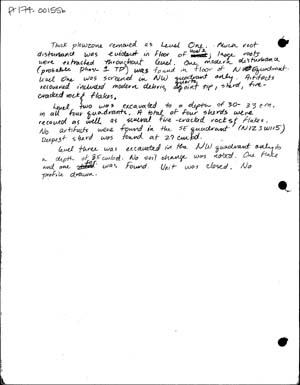 PT 174. 00155b
Thick plowzone removed as Level One. Much root
disturbance was evident in floor of level; large roots
were extracted throughout level. One modern disturbance
(probable phase I TP) was found in floor of quadrant.
Level one was screened in NW quadrant only. Artifacts
recovered included modern debris, quartz point tip, sherd, fire-
cracked rock, flakes.
Level two was excavated to a depth of 30-33 cm.
in all four quadrants. A total of four sherds were
recovered as well as several fire-cracked rocks, flakes.
No artifacts were found in the SE quadrant (N123W115)
Deepest sherd was found at 27 cmbd.
Level three was excavated in the NW quadrant only to
a depth of 35 cmbd. No soil change was noted. One flake
and one was found. Unit was closed. No
profile drawn.